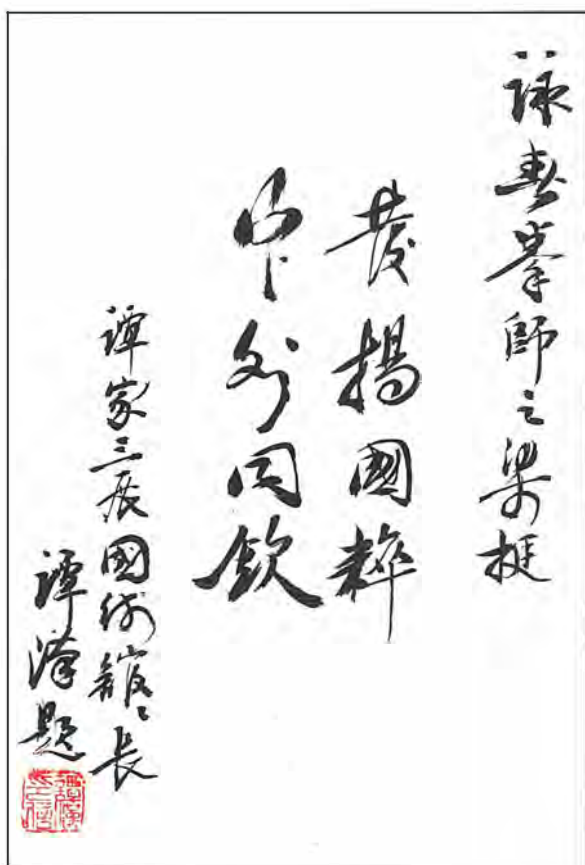 詠春拳師之梁挺
發揚國粹
中外同欽
譚家三展國術館々長
譚漢題